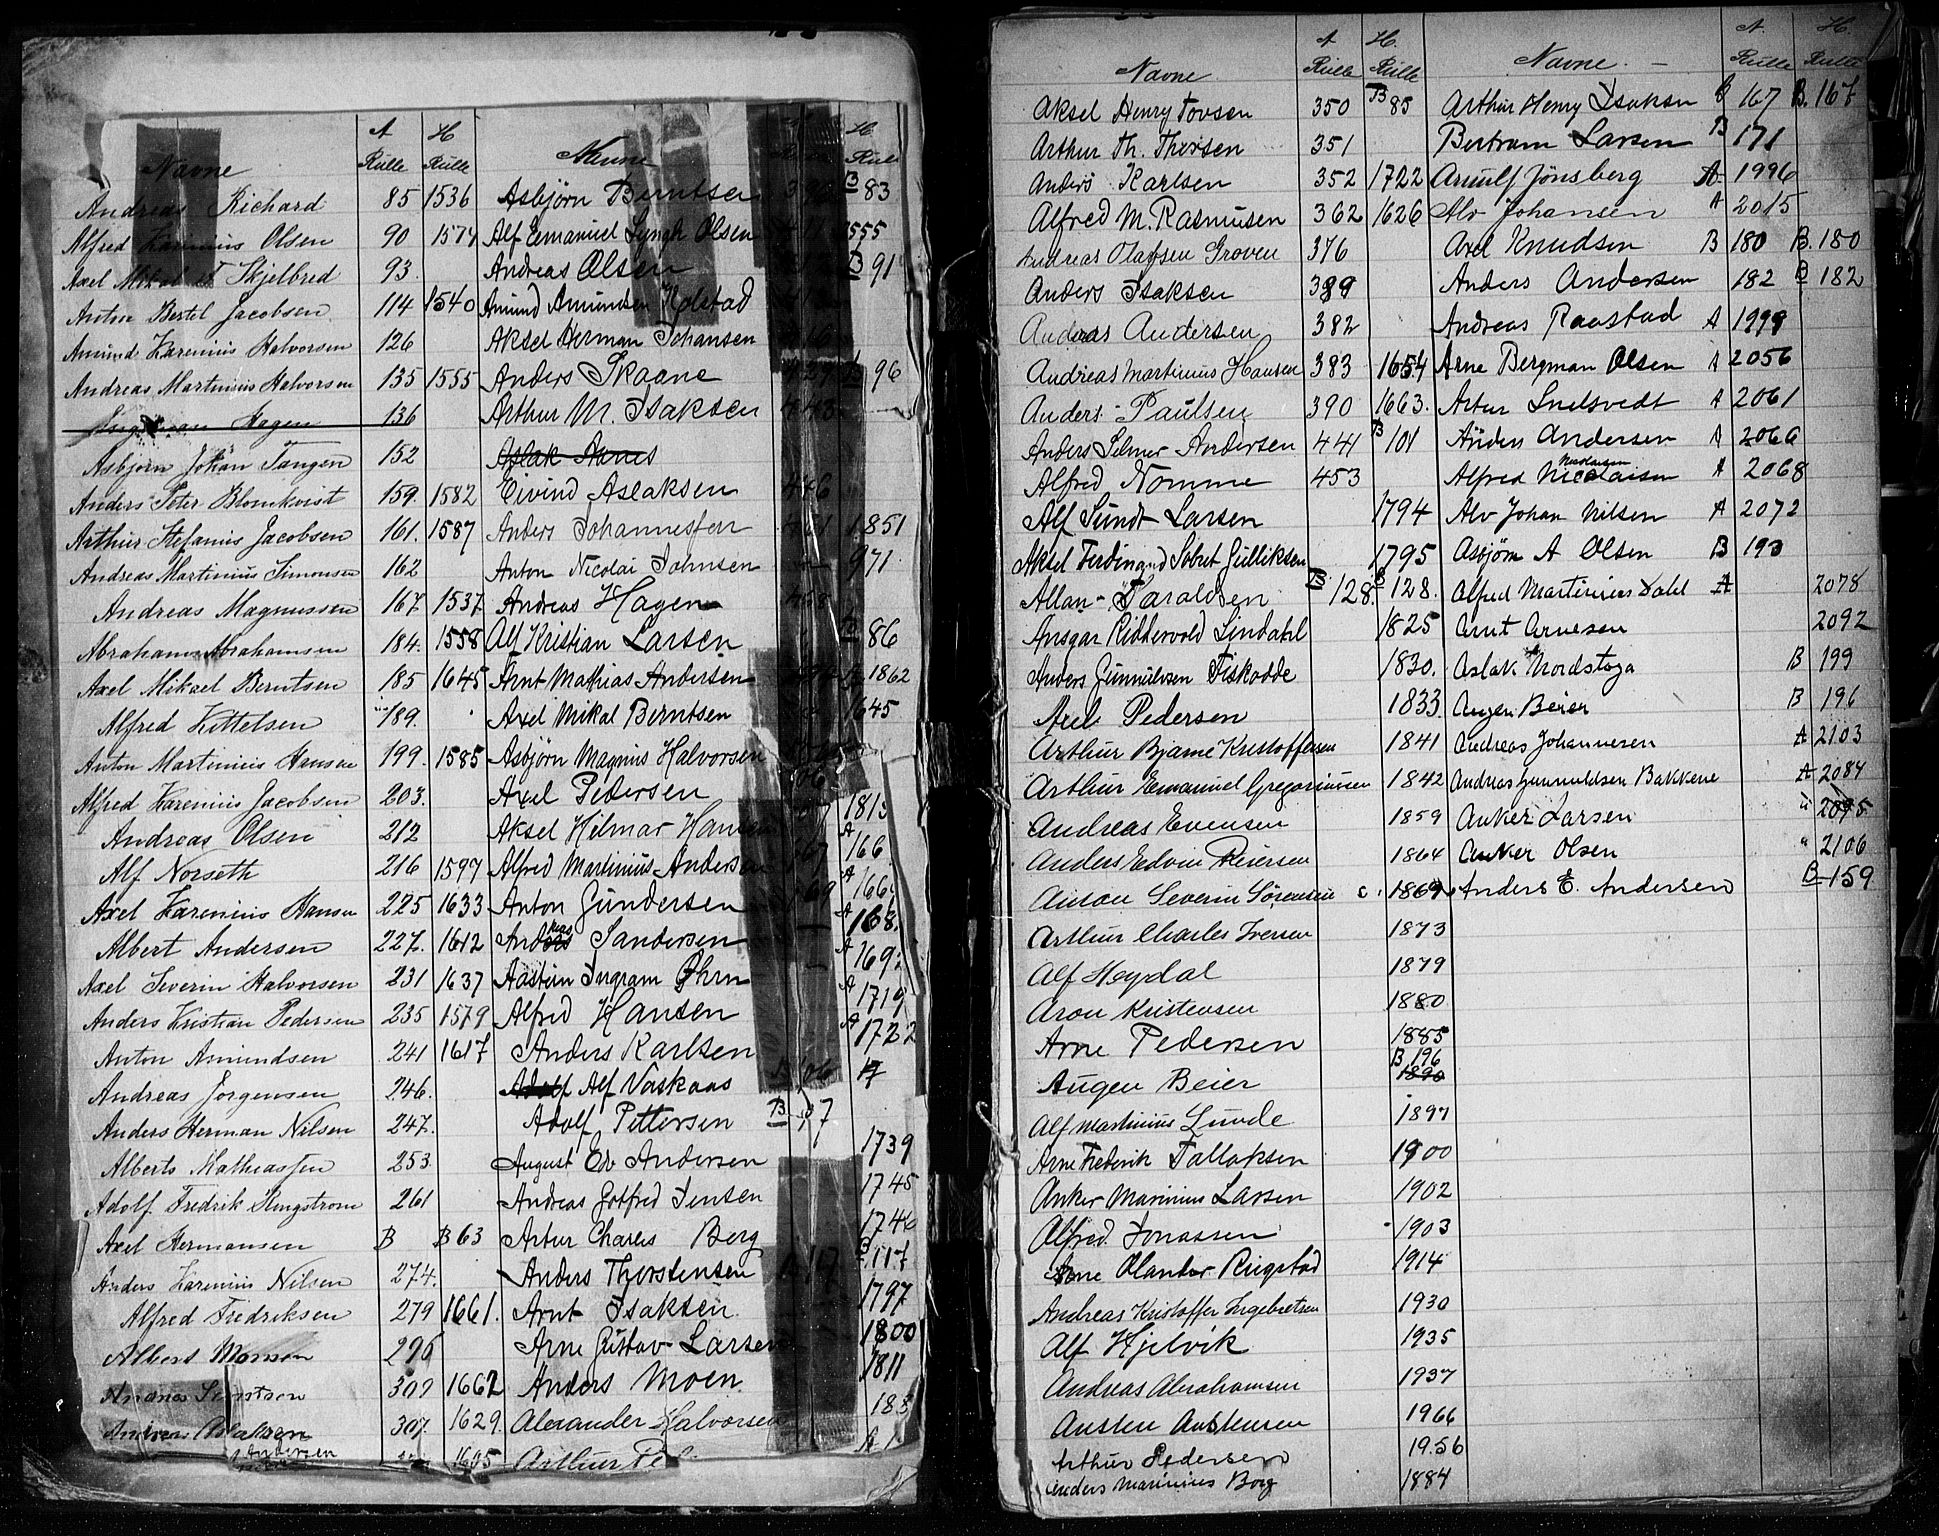 Navne A Rulle H Rulle
Andreas Richard 85 1536
Alfred Karenius Olsen 90 1574
Axel Mikal Skjelbred 93.
Anton Bertel Jacobsen 114 1540
Amund Karenius Halvorsen 126
Andreas Martinius Halvorsen 135 1555
Hagen 136
Asbjørn Johan Tangen 152
Anders Peter Blomkvist 159. 1582
Arthur Stefanus Jacobsen 161. 1587
Andreas Martinius Simonsen 162
Andreas Magnussen 167. 1537
Abraham Abrahamsen 184. 1558
Axel Mikael Berntsen 185 1645
Alfred Kittelsen 189.
Anton Martinius Hansen 199. 1585
Alfred Karenius Jacobsen 203.
Andreas Olsen 212
Alf Norseth 216 1597
Axel Karenius Hansen 225 1633
Albert Andersen 227. 1612
Axel Severin Halvorsen 231 1637
Anders Kristian Pedersen 235 1579
Anton Amundsen 241 1617
Andreas Jørgensen 246.
Anders Herman Nilsen 247.
Alberts Mathiassen 253
Adolf Fredrik Stengstrom 261
Axel Hermansen B B 63
Anders Karenius Nilsen 274.
Alfred Fredriksen 279 1661.
Albert 296
1662
307. 1629
Andersen 1605
Navne H Rulle
Asbjørn Berntsen B 83
Alf Emanuel Lyngh Olsen 1555
Andreas Olsen B 91
Amund Amundsen Kolstad
Aksel Herman Johansen
Anders Skaane 96
Arthur M. Isaksen
Aslak
Eivind Aslaksen 446
Anders Johannessen 1851
Anton Nicolai Johnsen 971
Andreas Hagen
Alf Kristian Larsen B 86
Arnt Mathias Andersen 1862
Axel Mikal Berntsen 1645
Asbjørn Magnus Halvorsen
Axel Pedersen
Aksel Hilmar Hansen 1815
Alfred Martinius Andersen A 166
Anton Gundersen A 166
Sandersen A 168.
Aastein Ingram Øhrn A 169
Alfred Hansen A 1719
Anders Karlsen A 1722
Alf Vaskaas
Adolf Pettersen B 97
August Edv Andersen 1739
Andreas Gotfred Jensen 1745
Artur Charles Berg 1746
Anders Thorstensen B 117
Arnt Isaksen 1797
Arne Gustav Larsen 1800
Anders Moen 1811
Alexander Halvorsen 183
Arthur
Navne A Rulle H. Rulle
Aksel Henry Tovsen 350 B 85
Arthur Th. Thorsen 351
Anders Karlsen 352 1722
Alfred M. Rasmusen 362 1626
Andreas Olavsen Groven 376
Anders Isaksen 389
Andreas Andersen 382
Andreas Martinius Hansen 383 1654
Anders Paulsen 390 1663.
Anders Selmer Andersen 441 B 101
Alfred Nomme 453
Alf Sundt Larsen 1794
Aksel Ferdinand Gulliksen 1795
Allan Taraldsen B 128. B 128.
Ansgar Riddervold Lindahl 1825
Anders Gunnulvsen Fiskodde 1830.
Axel Pedersen 1833
Arthur Bjarne Kristoffersen 1841
Arthur Emanuel Gregoriussen 1842
Andreas Evensen 1859
Anders Edvin Reiersen 1864
Anton Severin Sørensen 1869
Arthur Charles Iversen 1873
Alf Heydal 1879
Aron Kristensen 1880
Arne Pedersen 1885
Augen Beier B 196 1890
Alf Martinius Lunde 1897
Arne Frederik Tallaksen 1900
Anker Marinius Larsen 1902
Alfred Jonassen 1903
Arne Olander Ringstad 1914
Andreas Kristoffer Ingebretsen 1930
Alf Hjelvik 1935
Andreas Abrahamsen 1937
Austen Austensen 1966
Arthur Pedersen 19.56
Anders Marinius Borg 1884
Navne. A. Rulle H. Rulle
Arthur Henry Isaksen B 167 B. 167
Bertram Larsen B 171
Arnulf Jönsberg A 1996
Alv Johansen A 2015
Axel Knudsen B 180 B. 180
Anders Andersen 182 B 182
Andreas Raastad A 1999
Arne Bergman Olsen A 2056
Artur Snelsvedt A 2061
Anders Andersen A 2066
Alfred Nicolaisen A 2068
Alv Johan Nilsen A 2072
Asbjörn A Olsen B 193
Alfred Martinius Dahl A 2078
Arnt Arnesen 2092
Aslak Nordstoga B 199
Augen Beier B 196
Andreas Johannesen A 2103
Andreas Gunnuldsen Bakkene A 2084
Anker Larsen " 2095
Anker Olsen " 2106
Anders E. Andersen B 159